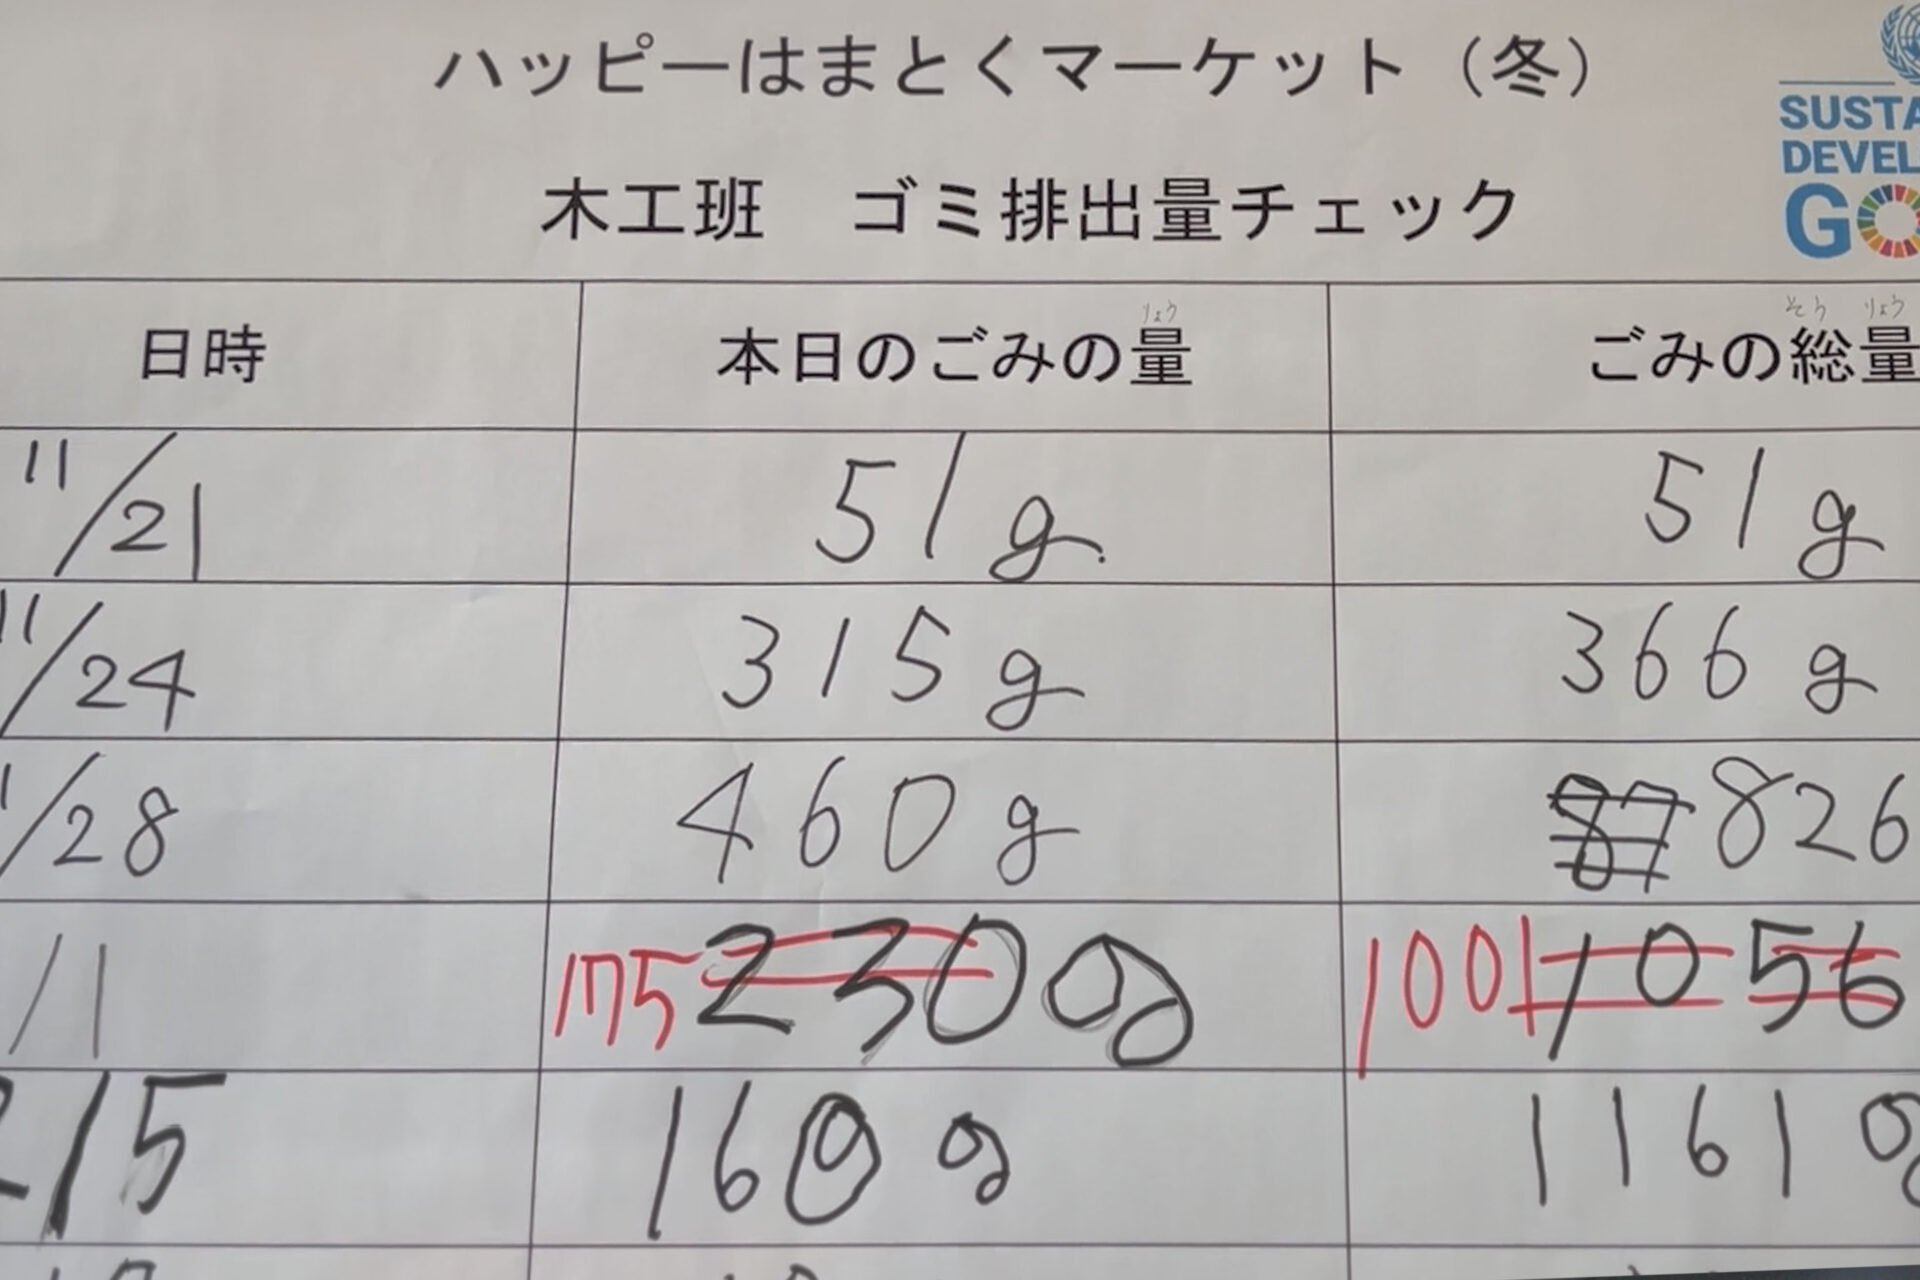 ハッピーはまとくマーケット（冬）
SUSTA
DEVEL
GO
木工班　ゴミ排出量チェック
日時 本日のごみの量 ごみの総量
りょう そう りょう
11/21 51g. 51g
11/24 315g 366g
1/28 460g 87 826
/1 175 230g 1001 1056
2/5 160g 1161g